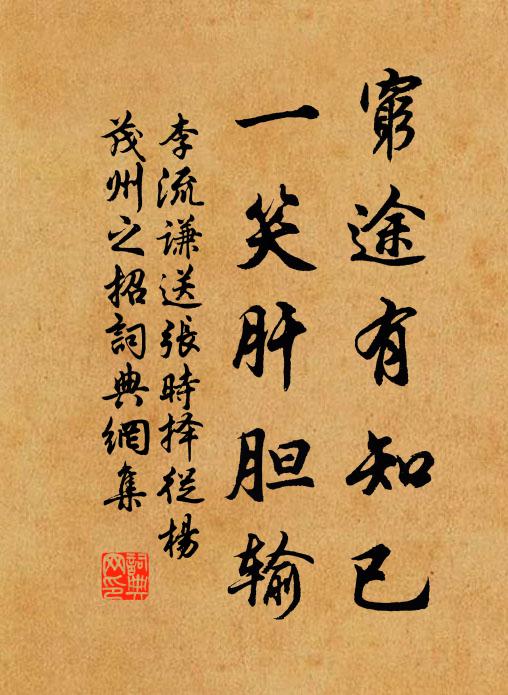 窮途有知已
一笑肝胆输
李流谦送張時择從楊
茂州之招詞典網集
詞典
网印